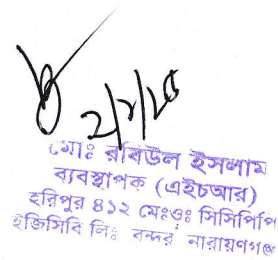 ২/৭/২৫
মোঃ রবিউল ইসলাম
ব্যবস্থাপক (এইচআর)
হরিপুর ৪১২ মেঃওঃ সিসিপিপি
ইজিসিবি লিঃ বন্দর নারায়ণগঞ্জ